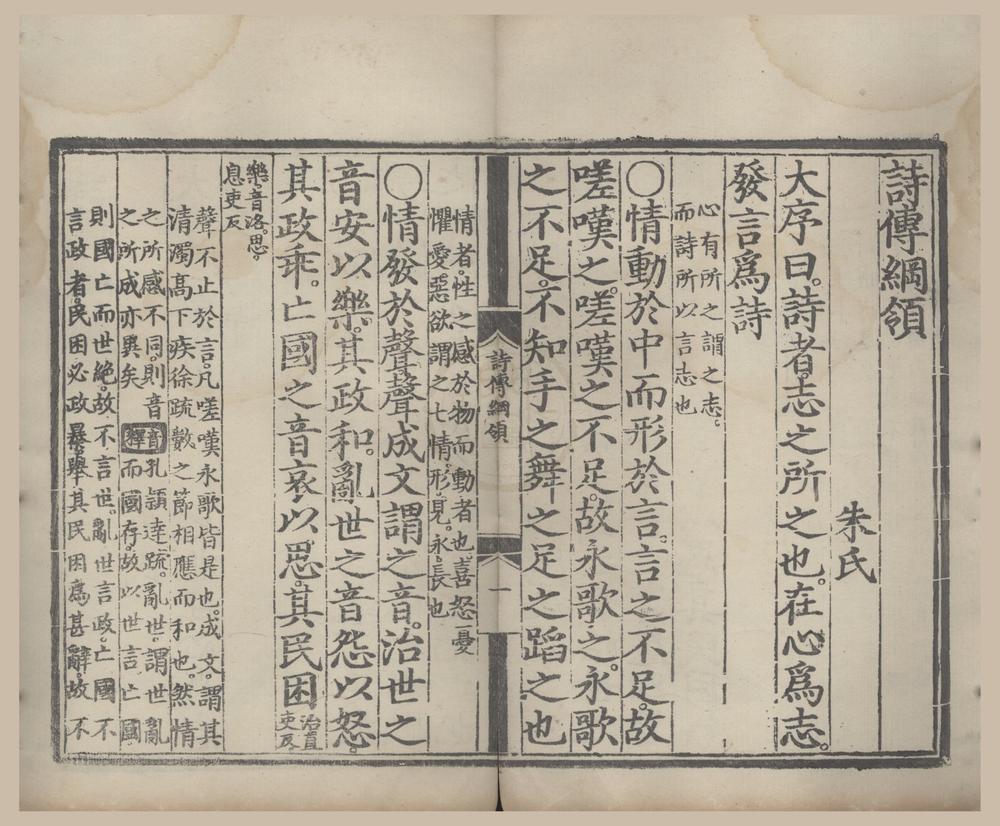 詩傳綱領
朱氏
大序曰。詩者。志之所之也。在心爲志。
發言爲詩
心有所之謂之志。
而詩所以言志也
〇情動於中而形於言。言之不足。故
嗟嘆之。嗟嘆之不足。故永歌之。永歌
之不足。不知手之舞之足之蹈之也
情者。性之感於物而動者也。喜怒憂
懼愛惡欲謂之七情。形。見。永。長也
詩傳綱領
一
〇情發於聲。聲成文謂之音。治世之
音安以樂。其政和。亂世之音怨以怒。
其政乖。亡國之音哀以思。其民困
治直
吏反
樂。音洛。思。
息吏反
聲不止於言。凡嗟嘆永歌皆是也。成文。謂其
清濁高下疾徐疏數之節相應而和也。然情
之所感不同。則音
之所成亦異矣
音釋
孔頴達疏。亂世。謂世亂
而國存。故以世言。亡國
則國亡而世絶。故不言世。亂世言政。亡國不
言政者。民困必政暴。舉其民困爲甚。辭故不